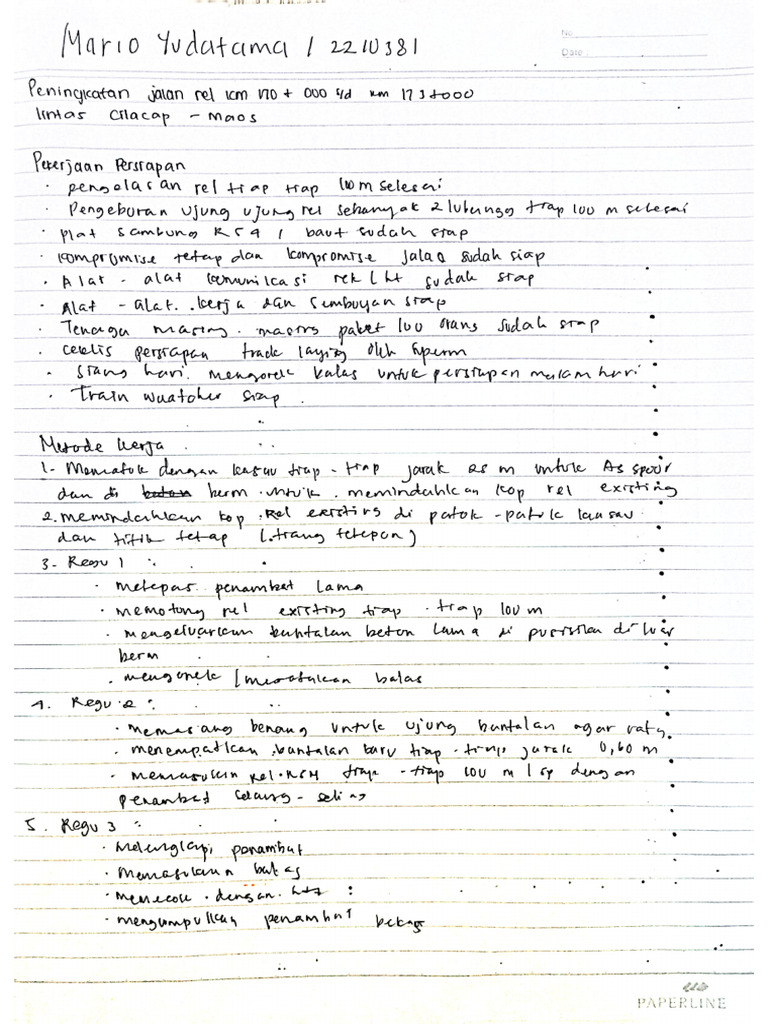 Mario Yudatama / 2210381
No.
Date :
Peningkatan jalan rel km 170 + 000 s/d km 173+000
lintas Cilacap - Maos
Pekerjaan Persiapan
· pengelasan rel tiap tiap 100 m selesai
· Pengeboran ujung ujung rel sebanyak 2 lubang tiap 100 m selesai
· plat sambung R54 / baut sudah siap
· kompromise tetap dan kompromise jalan sudah siap
· Alat - alat komunikasi sudah siap
· Alat - alat kerja dan Semboyan siap
· Tenaga masing - masing paket 100 orang sudah siap
· ceklis persiapan track laying oleh
· Siang hari mengorek balas untuk persiapan malam hari
· Train watcher siap
Metode kerja
1- Mematok dengan kasau tiap - tiap jarak 25 m untuk As spoor
dan di berm untuk memindahkan kop rel existing
2. memindahkan kop rel existing di patok - patok kasau
dan titik tetap (tiang telepon)
3- Regu 1 :
· melepas penambat lama
· memotong rel existing tiap - tiap 100 m
· mengeluarkan bantalan beton lama di posisikan di luar
berm
· mengorek / meratakan balas
4. Regu 2 :
· memasang benang untuk ujung bantalan agar rata
· menempatkan bantalan baru tiap - tiap jarak 0,60 m
· memasukan rel R54 tiap - tiap 100 m / sp dengan
penambat selang - seling
5. Regu 3 :
· Melengkapi penambat
· Memasukan balas
· memecok dengan
· mengumpulkan penambat bekas
PAPERLINE